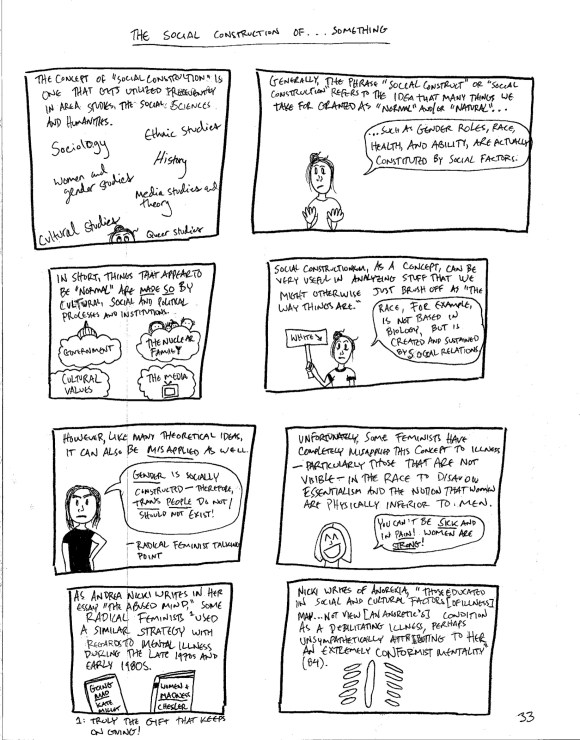 THE SOCIAL CONSTRUCTION OF... SOMETHING
THE CONCEPT OF "SOCIAL CONSTRUCTION" IS
ONE THAT GETS UTILIZED FREQUENTLY
IN AREA STUDIES, THE SOCIAL SCIENCES
AND HUMANITIES.
Sociology
Ethnic Studies
History
Women and
gender studies
Media studies and
theory
Cultural Studies
Queer studies
GENERALLY, THE PHRASE "SOCIAL CONSTRUCT" OR "SOCIAL
CONSTRUCTION" REFERS TO THE IDEA THAT MANY THINGS WE
TAKE FOR GRANTED AS "NORMAL" AND/OR "NATURAL"...
...SUCH AS GENDER ROLES, RACE,
HEALTH, AND ABILITY, ARE ACTUALLY
CONSTITUTED BY SOCIAL FACTORS.
IN SHORT, THINGS THAT APPEAR TO
BE "NORMAL" ARE MADE SO BY
CULTURAL, SOCIAL AND POLITICAL
PROCESSES AND INSTITUTIONS.
GOVERNMENT
THE NUCLEAR
FAMILY
CULTURAL
VALUES
THE MEDIA
SOCIAL CONSTRUCTIONISM, AS A CONCEPT, CAN BE
VERY USEFUL IN ANALYZING STUFF THAT WE
MIGHT OTHERWISE JUST BRUSH OFF AS "THE
WAY THINGS ARE."
WHITE
RACE, FOR EXAMPLE,
IS NOT BASED IN
BIOLOGY, BUT IS
CREATED AND SUSTAINED
BY SOCIAL RELATIONS.
HOWEVER, LIKE MANY THEORETICAL IDEAS,
IT CAN ALSO BE MISAPPLIED AS WELL.
GENDER IS SOCIALLY
CONSTRUCTED—THEREFORE,
TRANS PEOPLE DO NOT/
SHOULD NOT EXIST!
- RADICAL FEMINIST TALKING
POINT
UNFORTUNATELY, SOME FEMINISTS HAVE
COMPLETELY MISAPPLIED THIS CONCEPT TO ILLNESS
—PARTICULARLY THOSE THAT ARE NOT
VISIBLE—IN THE RACE TO DISAVOW
ESSENTIALISM AND THE NOTION THAT WOMEN
ARE PHYSICALLY INFERIOR TO MEN.
YOU CAN'T BE SICK AND
IN PAIN! WOMEN ARE
STRONG!
AS ANDREA NICKI WRITES IN HER
ESSAY "THE ABUSED MIND," SOME
RADICAL FEMINISTS ¹USED
A SIMILAR STRATEGY WITH
REGARDS TO MENTAL ILLNESS
DURING THE LATE 1970s AND
EARLY 1980s.
GOING
MAD
KATE
MILLET
WOMEN &
MADNESS
CHESLER
1: TRULY THE GIFT THAT KEEPS
ON GIVING!
NICKI WRITES OF ANOREXIA, "THOSE EDUCATED
IN SOCIAL AND CULTURAL FACTORS [OF ILLNESS]
MAY...NOT VIEW [AN ANORETIC'S] CONDITION
AS A DEBILITATING ILLNESS, PERHAPS
UNSYMPATHETICALLY ATTRIBUTING TO HER
AN EXTREMELY CONFORMIST MENTALITY"
(84).
33